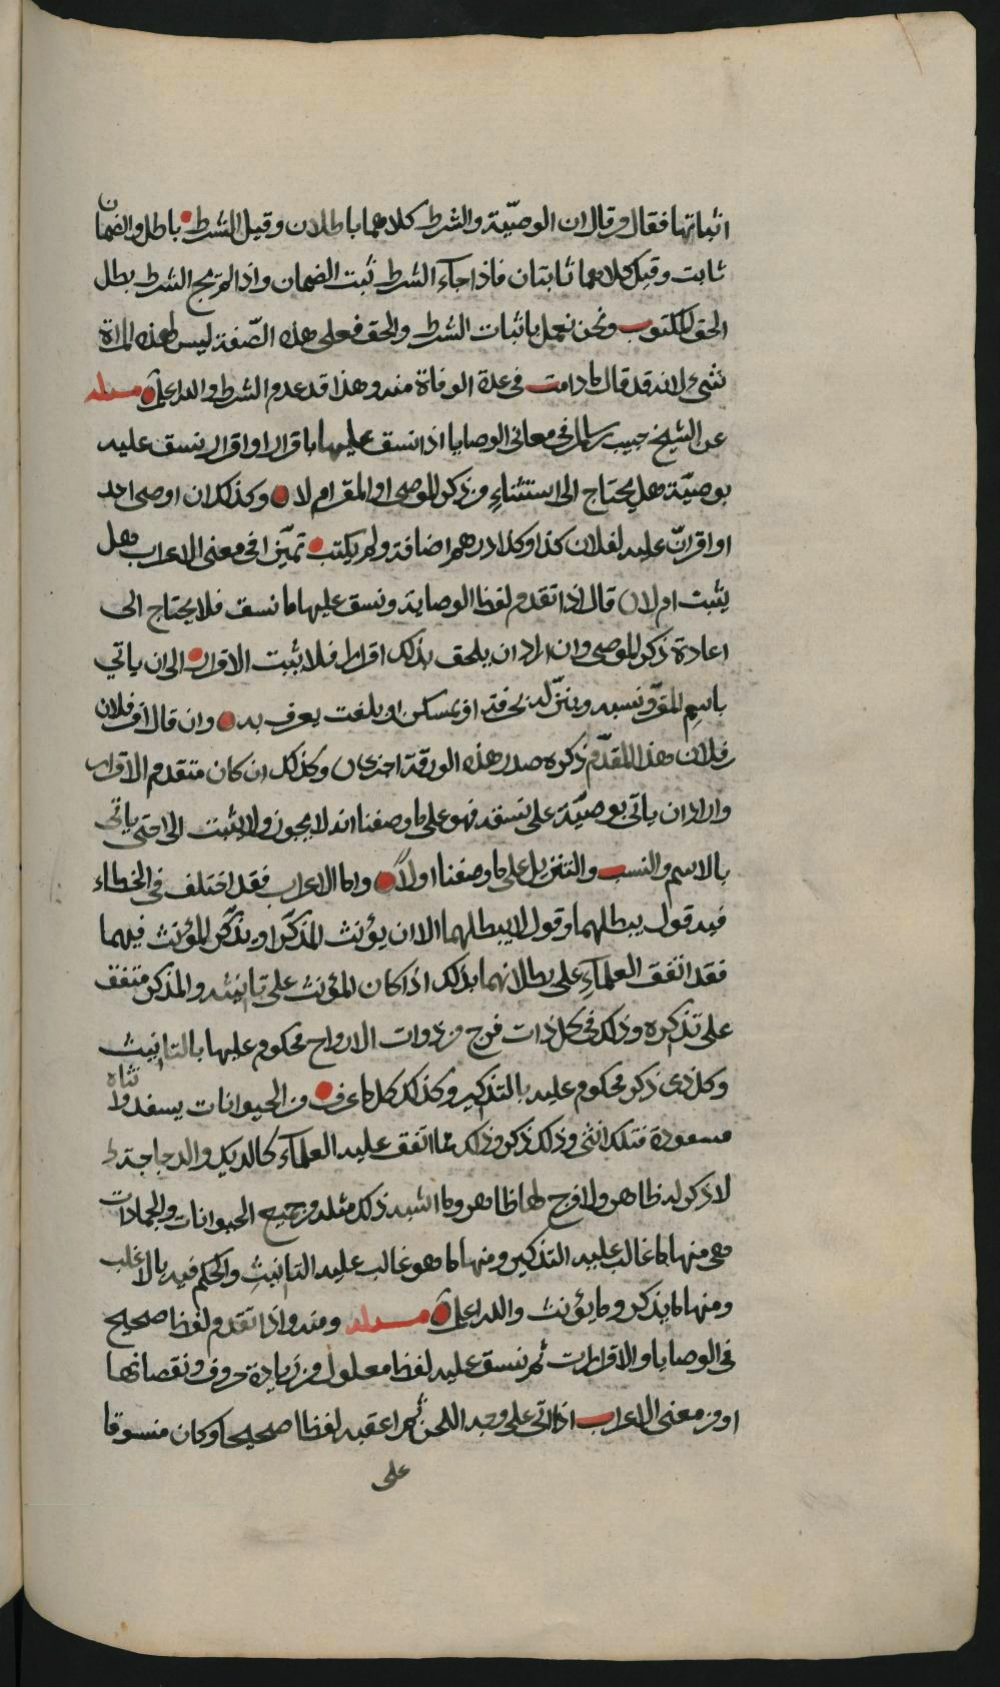 اثباتها فقال من قال ان الوصيّة والشرط كلاهما باطلان وقيل الشرط باطل والضمان
ثابت وقيل كلاهما ثابتان فاذا جآء الشرط ثبت الضمان واذا لم يجئ الشرط بطل
الحق المكتوب ونحن نعمل باثبات الشرط والحق فعلى هذه الصّفة ليس لهذه المراة
شئ لانه قد قال ما دامت في عدة الوفاة منه وهذا قد عدم الشرط والله اعلم مسئلة
عن الشيخ حبيب بن سالم في معاني الوصايا اذا نسق عليها باقرار او اقرار ينسق عليه
بوصيّة هل يحتاج الى استثناءٍ من ذكر الموصى او المقر ام لا وكذلك ان اوصى احد
او اقر انّ عليه لفلان كذا وكذا درهم اضافة ولم يكتب تميّزا في معنى الاعراب هل
يثبت ام لا قال اذا تقدم لفظ الوصاية ونسق عليها ما نسق فلا يحتاج الى
اعادة ذكر الموصى وان اراد ان يلحق بذلك اقرارا فلا يثبت الاقرار الى ان ياتي
باسمِ المقرّ ونسبه وينزّله بحرفته او بمسكن او بلغت يعرف به وان قال اقر فلان
بن فلان هذا المقدّم ذكره صدر هذه الورقة اجتزى وكذلك ان كان متقدم الاقرار
واراد ان ياتي بوصيّة على نسقه فهو على ما وصفنا انه لا يجوز ولا يثبت الا حتى ياتي
بالاسم والنسب والتنزيل على ما وصفنا اولاً واما الاعراب فقد اختلف في الخطاء
فيه قول يبطلهما وقول لا يبطلهما الا ان يؤنث المذكّر او يذكّر المؤنث فيهما
فقد اتفق العلمآءِ على بطلانهما بذلك اذا كان المؤنث على تانيثه والمذكر متفق
على تذكيره وذلك في كل ذات فرج من ذوات الارواح محكوم عليها بالتانيث
وكل ذى ذكر محكوم عليه بالتذكير وكذلك كل ما عرف من الحيوانات يسفد وانثاه
مسفودة فتلك انثى وذلك ذكر وذلك مما اتفق عليه العلمآء كالديك والدجاجة
لا ذكر له ظاهر ولا فرج لها ظاهر وما اشبه ذلك مثله من جميع الحيوانات والجمادات
هي منها ما غالب عليه التذكير ومنها ما هو غالب عليه التانيثِ والحكم فيه بالاغلب
ومنها ما يذكر وما يؤنث والله اعلم مسئلة ومنه واذا تقدم لفظ صحيح
في الوصايا والاقرارات ثم نسق عليه لفظ معلول من زيادة حروف ونقصانها
او من معنى الاعراب اذا اتى على وجه اللحن ثم اعقبه لفظا صحيحا وكان منسوقا
على